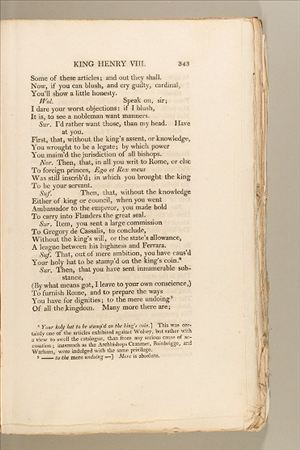 KING HENRY VIII. 343
Some of these articles; and out they shall.
Now, if you can blush, and cry guilty, cardinal,
You'll show a little honesty.
Wol. Speak on, sir;
I dare your worst objections: if I blush,
It is, to see a nobleman want manners.
Sur. I'd rather want those, than my head. Have
at you.
First, that, without the king's assent, or knowledge,
You wrought to be a legate; by which power
You maim'd the jurisdiction of all bishops.
Nor. Then, that, in all you writ to Rome, or else
To foreign princes, Ego et Rex meus
Was still inscrib'd; in which you brought the king
To be your servant.
Suf. Then, that, without the knowledge
Either of king or council, when you went
Ambassador to the emperor, you made bold
To carry into Flanders the great seal.
Sur. Item, you sent a large commission
To Gregory de Cassalis, to conclude,
Without the king's will, or the state's allowance,
A league between his highness and Ferrara.
Suf. That, out of mere ambition, you have caus'd
Your holy hat to be stamp'd on the king's coin.
Sur. Then, that you have sent innumerable sub-
stance,
(By what means got, I leave to your own conscience,)
To furnish Rome, and to prepare the ways
You have for dignities; to the mere undoing
Of all the kingdom. Many more there are;
Your holy hat to be stamp'd on the king's coin.] This was cer-
tainly one of the articles exhibited against Wolsey, but rather with
a view to swell the catalogue, than from any serious cause of ac-
cusation; inasmuch as the Archbishops Cranmer, Bainbrigge, and
Warham, were indulged with the same privilege.
—— to the mere undoing —] Mere is absolute.